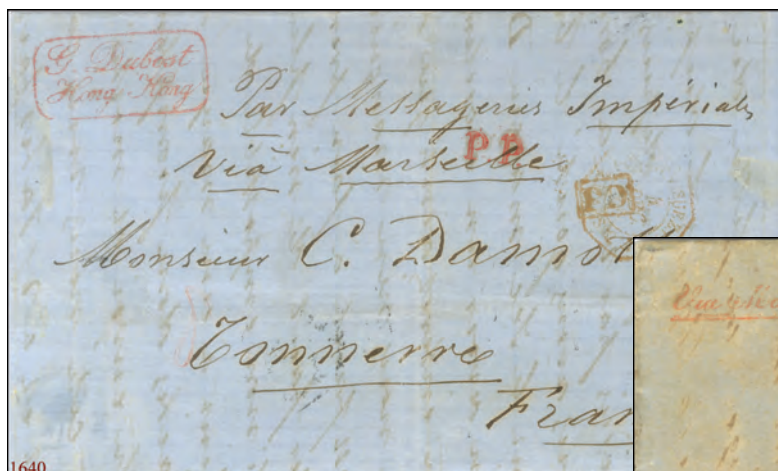 G. Dubost
Hong Kong
Par Messageries Impériales
P P
Viâ Marseille
PD
Monsieur C. Damot
Tonnerre
Fran
1640